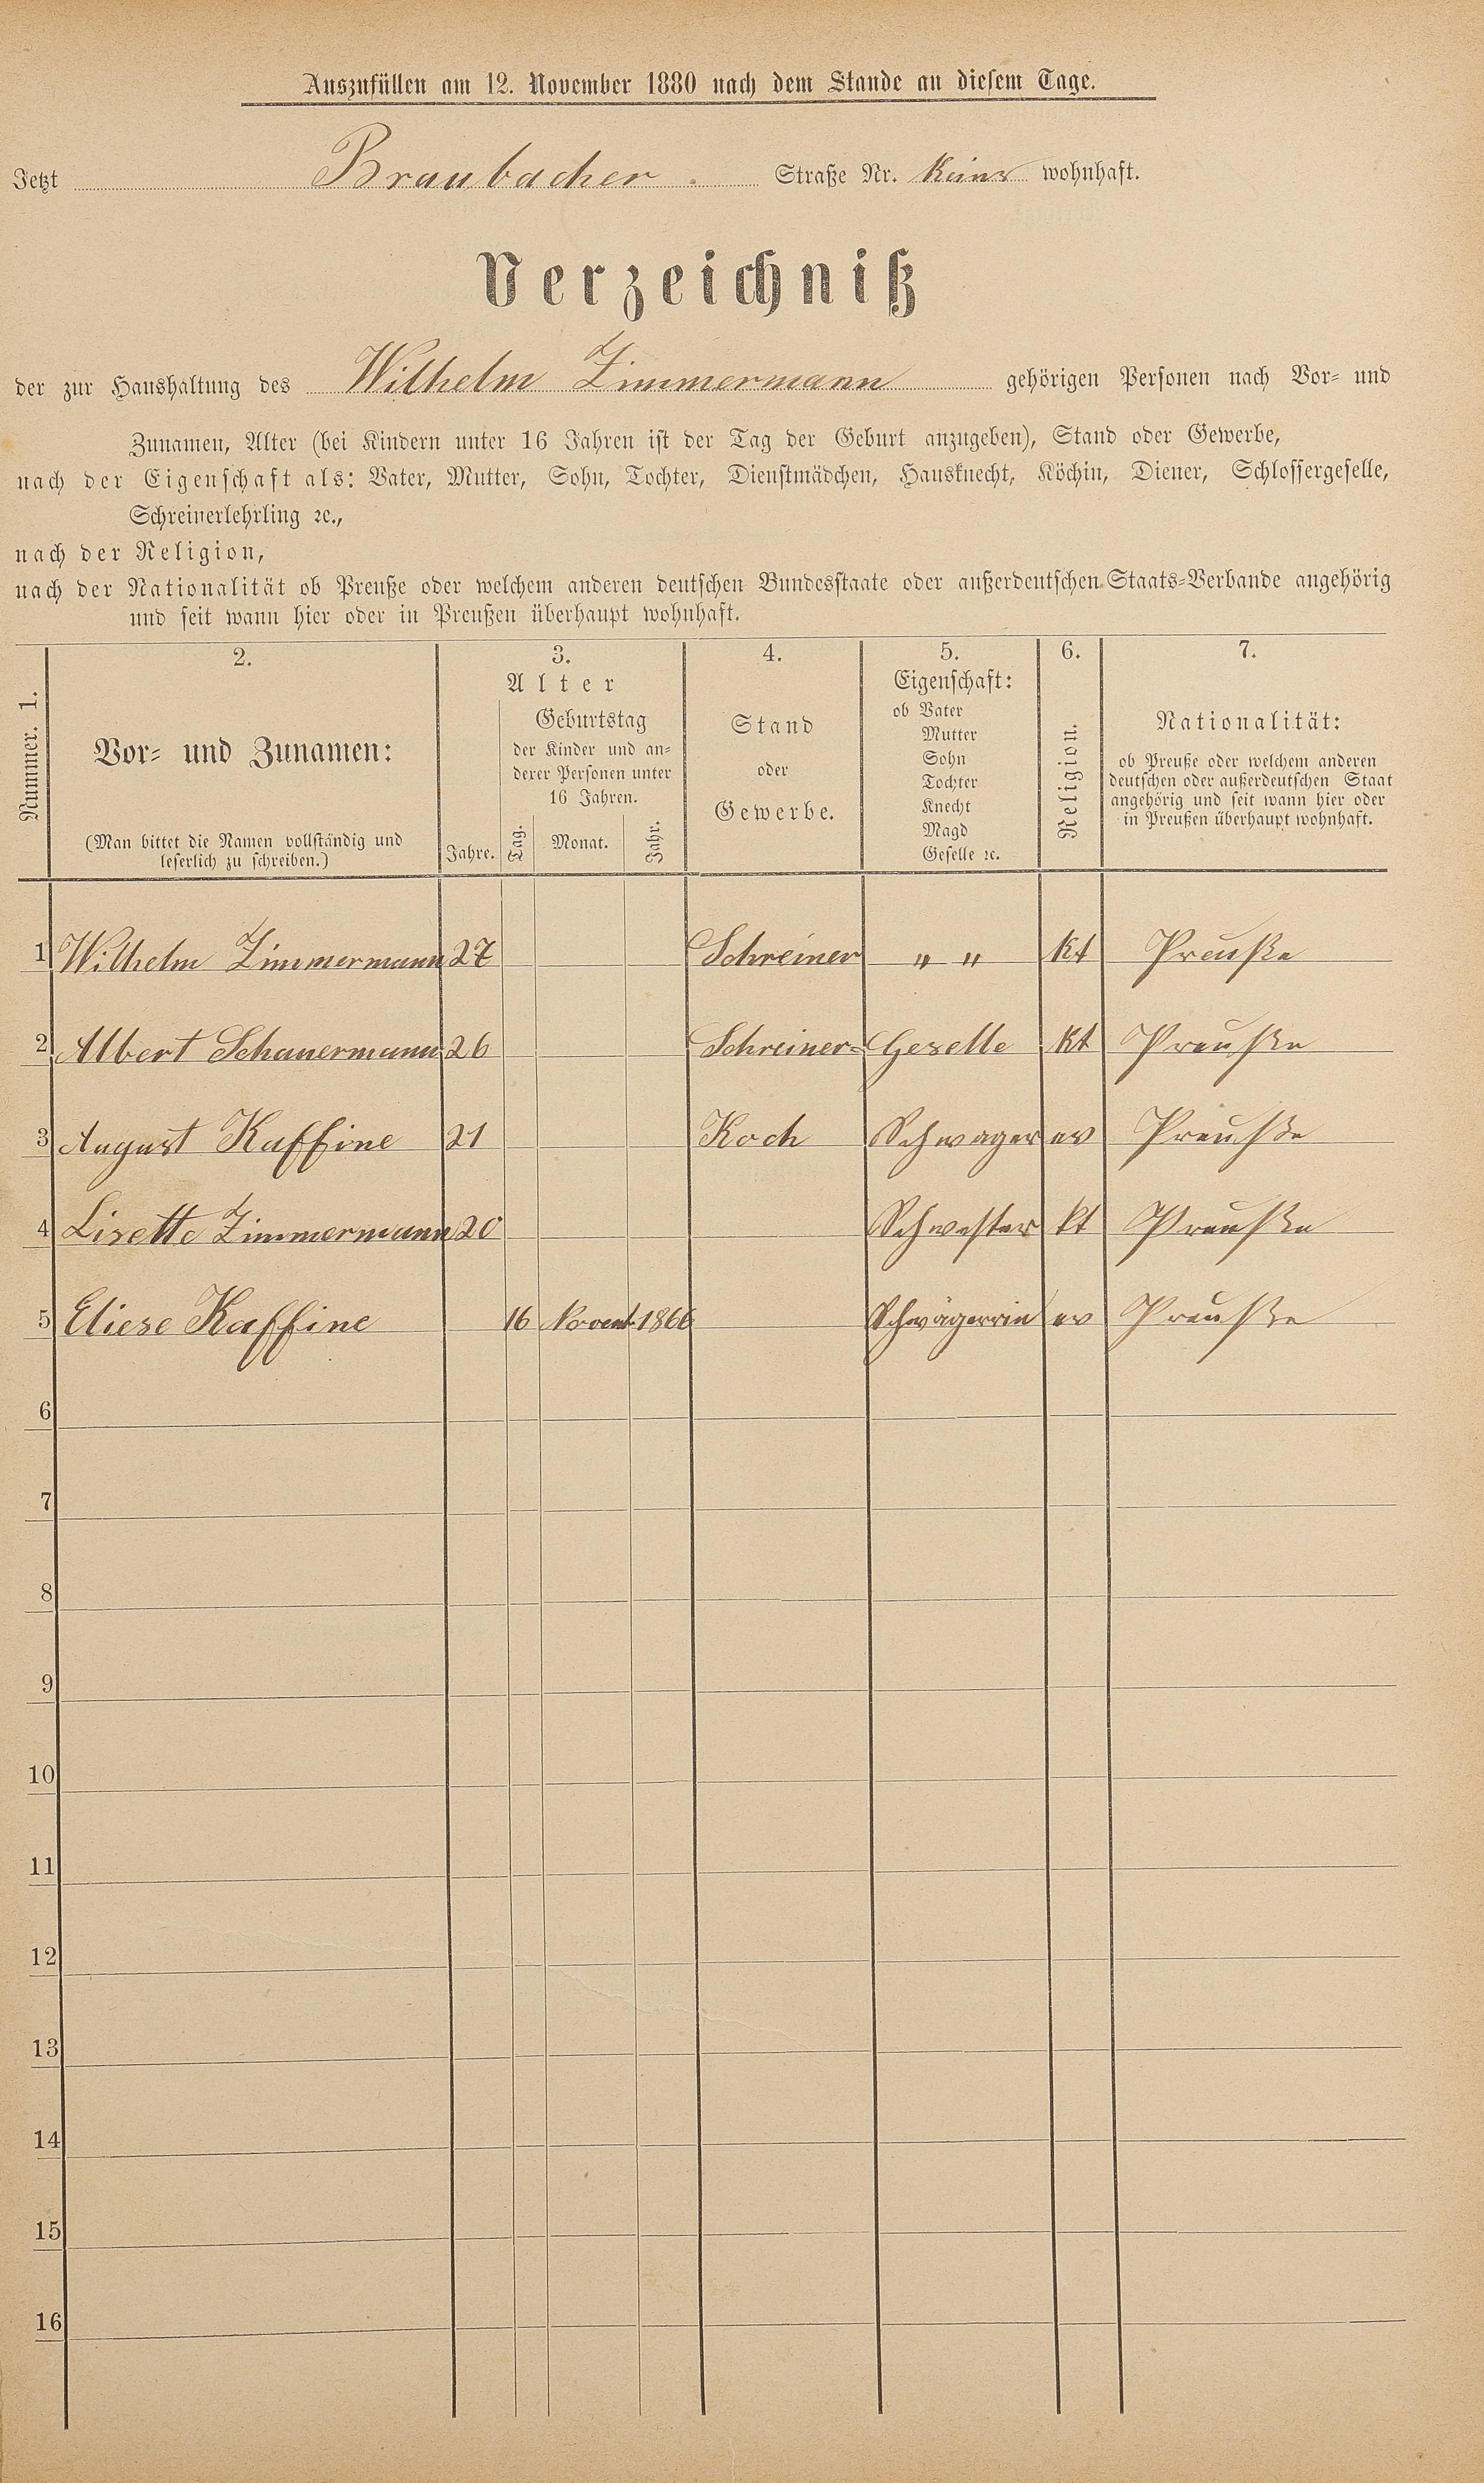 Auszufüllen am 12. November 1880 nach dem Stande an diesem Tage.
Jetzt Braubacher Straße Nr. Keine wohnhaft.
Verzeichniß
der zur Haushaltung des Wilhelm Zimmermann gehörigen Personen nach Vor- und
Zunamen, Alter (bei Kindern unter 16 Jahren ist der Tag der Geburt anzugeben), Stand oder Gewerbe,
nach der Eigenschaft als: Vater, Mutter, Sohn, Tochter, Dienstmädchen, Hausknecht, Köchin, Diener, Schlossergeselle,
Schreinerlehrling ꝛc.,
nach der Religion,
nach der Nationalität ob Preuße oder welchem anderen deutschen Bundesstaate oder außerdeutschen Staats-Verbande angehörig
und seit wann hier oder in Preußen überhaupt wohnhaft.
Nummer. 1.
2.
Vor- und Zunamen:
(Man bittet die Namen vollständig und
leserlich zu schreiben.)
3.
Alter
Jahre.
Geburtstag
der Kinder und an-
derer Personen unter
16 Jahren.
Tag. Monat. Jahr.
4.
Stand
oder
Gewerbe.
5.
Eigenschaft:
ob Vater
Mutter
Sohn
Tochter
Knecht
Magd
Geselle ꝛc.
6.
Religion.
7.
Nationalität:
ob Preuße oder welchem anderen
deutschen oder außerdeutschen Staat
angehörig und seit wann hier oder
in Preußen überhaupt wohnhaft.
1 Wilhelm Zimmermann 27 Schreiner " " kt Preuße
2 Albert Schauermann 26 Schreiner- Geselle kt Preuße
3 August Kaffine 21 Koch Schwager ev Preuße
4 Lisette Zimmermann 20 Schwester kt Preuße
5 Eliese Kaffine 16 Novemb. 1866 Schwägerrin ev Preuße
6
7
8
9
10
11
12
13
14
15
16